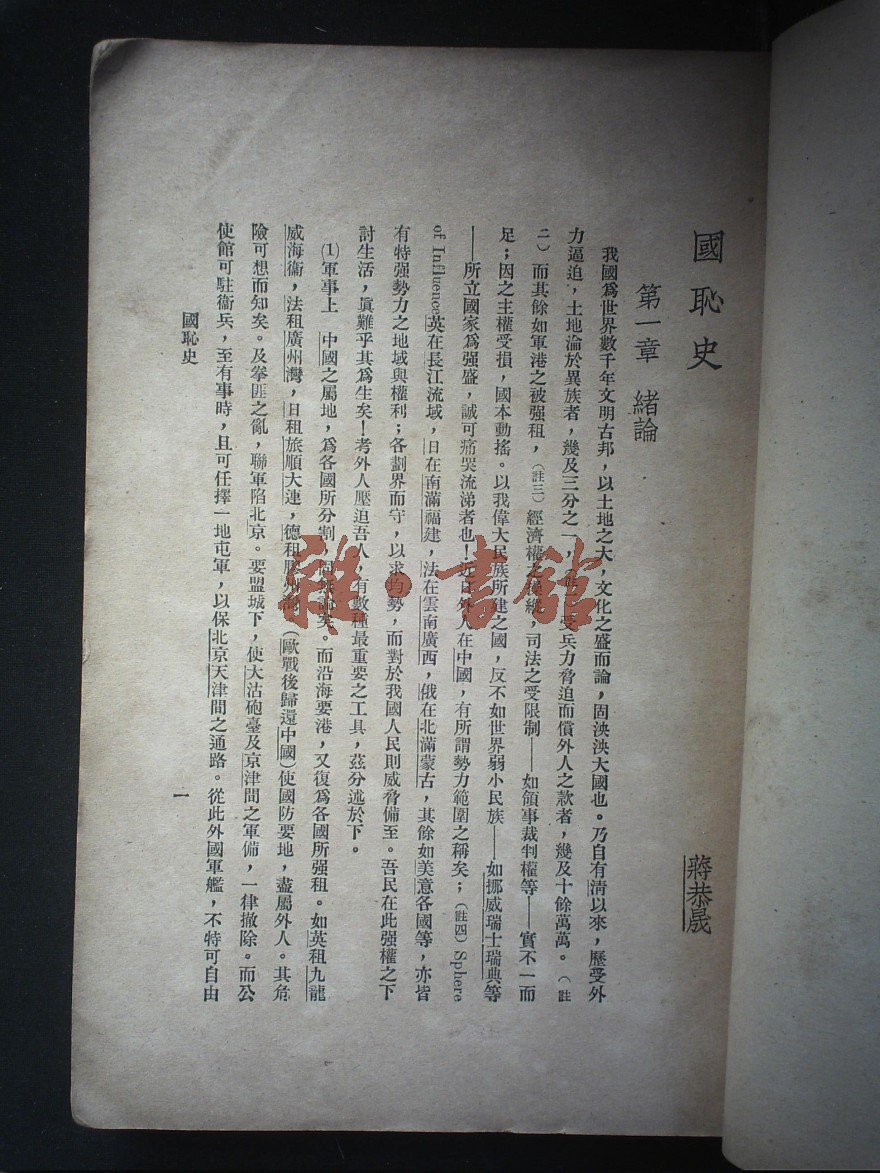 國恥史
蔣恭晟
第一章 緒論
我國爲世界數千年文明古邦，以土地之大，文化之盛而論，固泱泱大國也。乃自有清以來，歷受外
力逼迫，土地淪於異族者，幾及三分之一，受兵力脅迫而償外人之款者，幾及十餘萬萬。（註
二）而其餘如軍港之被强租，（註三）經濟權之操縱，司法之受限制——如領事裁判權等——實不一而
足；因之主權受損，國本動搖。以我偉大民族所建之國，反不如世界弱小民族——如挪威瑞士瑞典等
——所立國家爲强盛，誠可痛哭流涕者也！近日外人在中國，有所謂勢力範圍之稱矣；（註四）Sphere
of Influence英在長江流域，日在南滿福建，法在雲南廣西，俄在北滿蒙古，其餘如美意各國等，亦皆
有特强勢力之地域與權利；各劃界而守，以求均勢，而對於我國人民則威脅備至。吾民在此强權之下
討生活，眞難乎其爲生矣！考外人壓迫吾人，有數種最重要之工具，茲分述於下。
⑴軍事上 中國之屬地，爲各國所分割，固無論矣。而沿海要港，又復爲各國所强租。如英租九龍
威海衞，法租廣州灣，日租旅順大連，德租膠州灣（歐戰後歸還中國）使國防要地，盡屬外人。其危
險可想而知矣。及拳匪之亂，聯軍陷北京。要盟城下，使大沽砲臺及京津間之軍備，一律撤除。而公
使館可駐衞兵，至有事時，且可任擇一地屯軍，以保北京天津間之通路。從此外國軍艦，不特可自由
國恥史
一
雜·書館